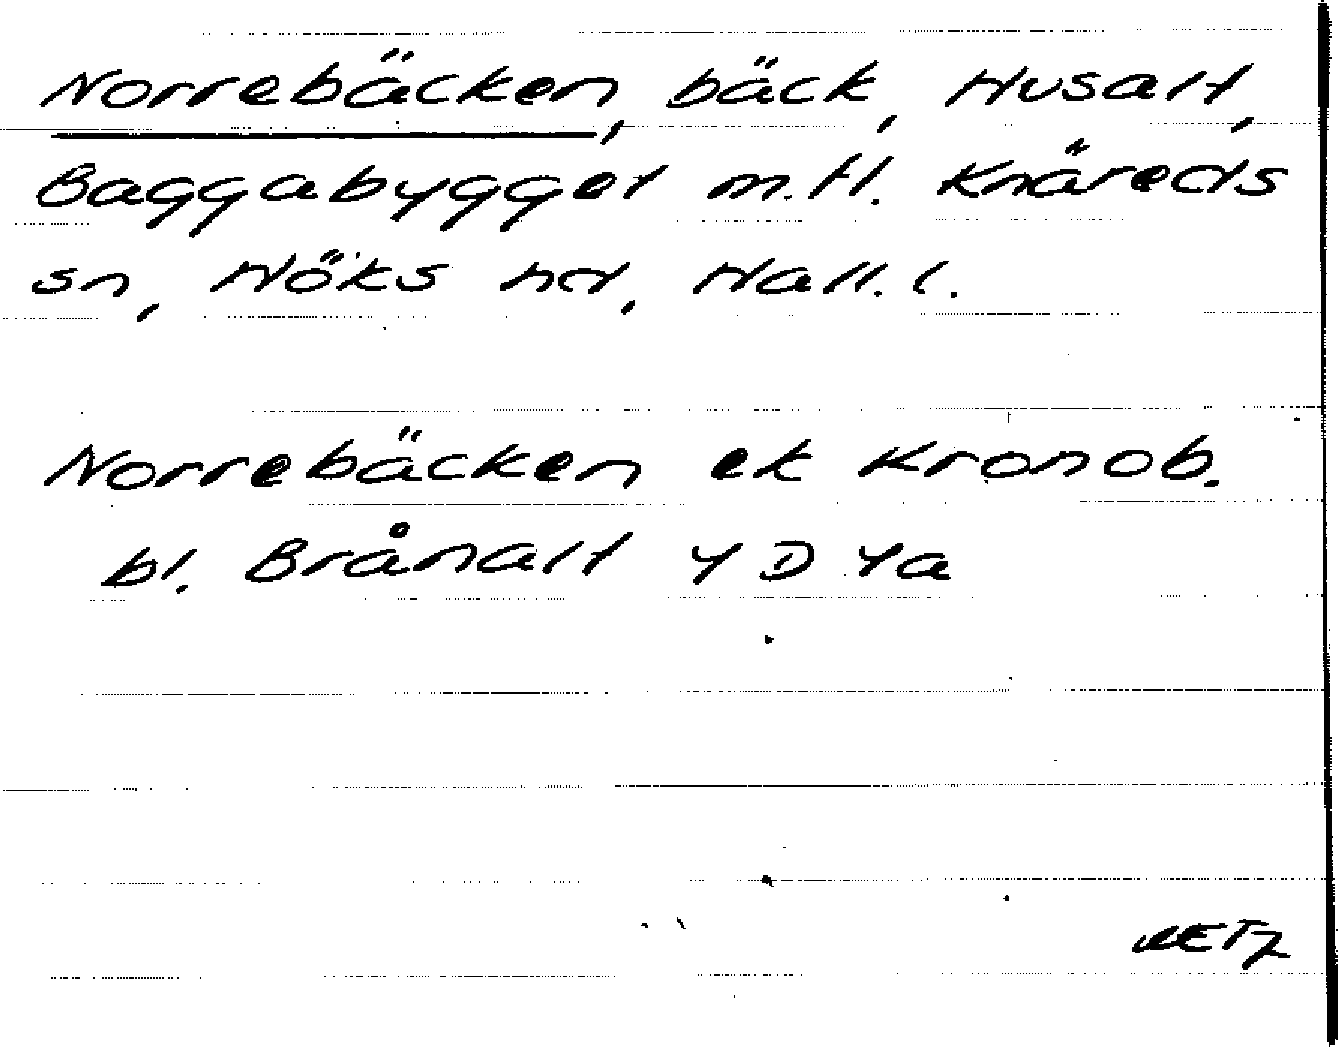 Norrebäcken, bäck, Husalt,
Baggabygget m.fl. Knäreds
sn, Höks hd, Hall. l.
Norrebäcken ek Kronob.
bl. Brånalt 4 D 4a